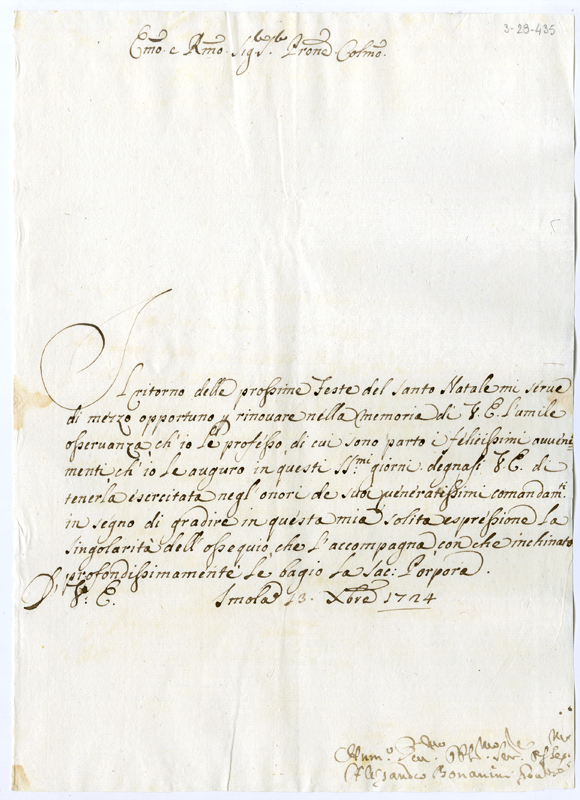 3-29-435
Emo. e Rmo. Sigr. Sr. Prone Colmo.
Il ritorno delle prossime Feste del Santo Natale mi serue
di mezzo opportuno p rinouare nella memoria di V. E. l'umile
osseruanza, ch'io le professo, di cui sono parto i felicissimi auueni=
menti, ch'io le auguro in questi SS.mi giorni. degnasi V. E. di
tenerla esercitata negl'onori de suoi veneratissimi comandamti.
in segno di gradire in questa mia solita espressione la
singolarità dell'ossequio, che l'accompagna, con che inchinato
profondissimamente le bagio la Sac: Porpora.
D' V. E. Imola 13. Xbre 1724
Humo. Deumo. Obblmo. Serre